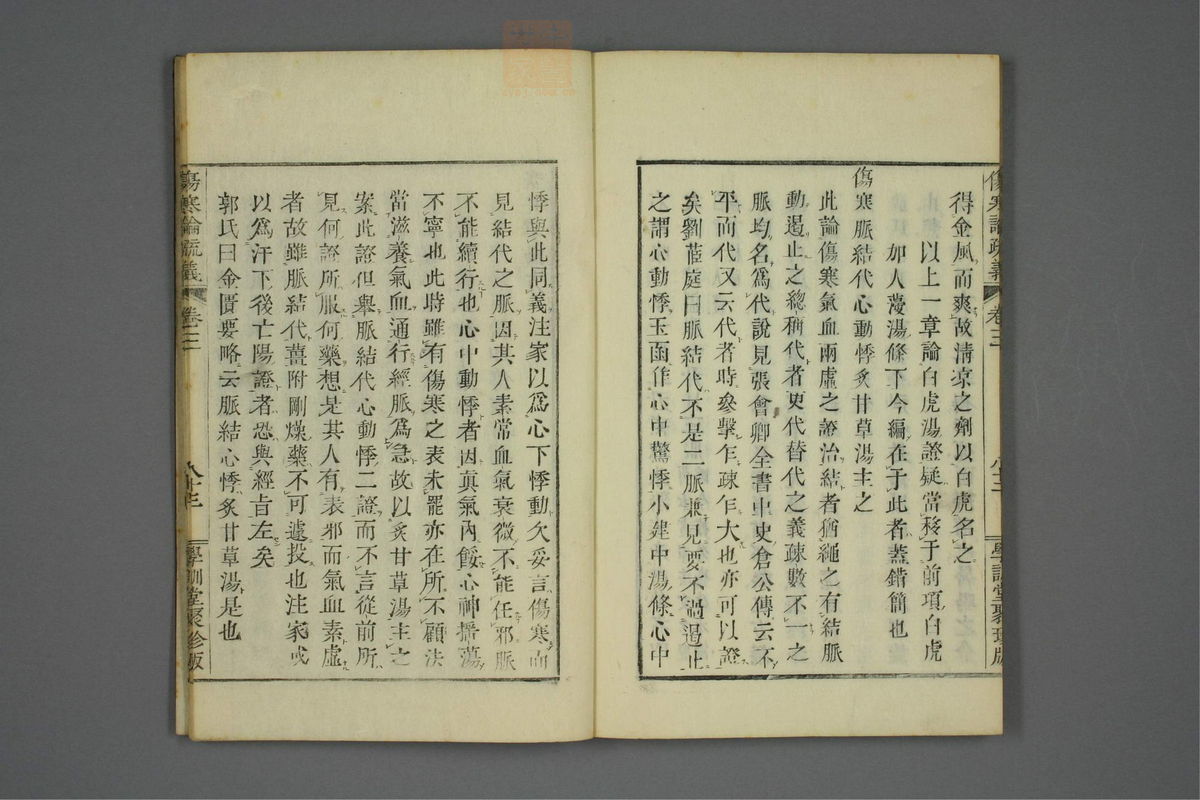 傷寒論疏義 卷三 八十三 學訓堂聚珍版
得金風而爽故清涼之劑以白虎名之
以上一章論白虎湯證疑當移于前項白虎
加人薓湯條下今編在于此者蓋錯簡也
傷寒脈結代心動悸炙甘草湯主之
此論傷寒氣血兩虛之證治結者猶繩之有結脈
動遏止之緫稱代者更代替代之義疎數不一之
脈均名爲代說見張會卿全書中史倉公傳云不
平而代又云代者時參擊乍疎乍大也亦可以證
矣劉茝庭曰脈結代不是二脈兼見要不過遏止
之謂心動悸玉函作心中驚悸小建中湯條心中
悸與此同義注家以爲心下悸動欠妥言傷寒而
見結代之脈因其人素常血氣衰微不能任邪脈
不能續行也心中動悸者因眞氣內餒心神搖蕩
不寧也此時雖有傷寒之表未罷亦在所不顧法
當滋養氣血通行經脈爲急故以炙甘草湯主之
案此證但舉脈結代心動悸二證而不言從前所
見何證所服何藥想是其人有表邪而氣血素虛
者故雖脈結代薑附剛燥藥不可遽投也注家或
以爲汗下後亡陽證者恐與經旨左矣
郭氏曰金匱要略云脈結心悸炙甘草湯是也
傷寒論疏義 卷三 八十三 學訓堂聚珍版